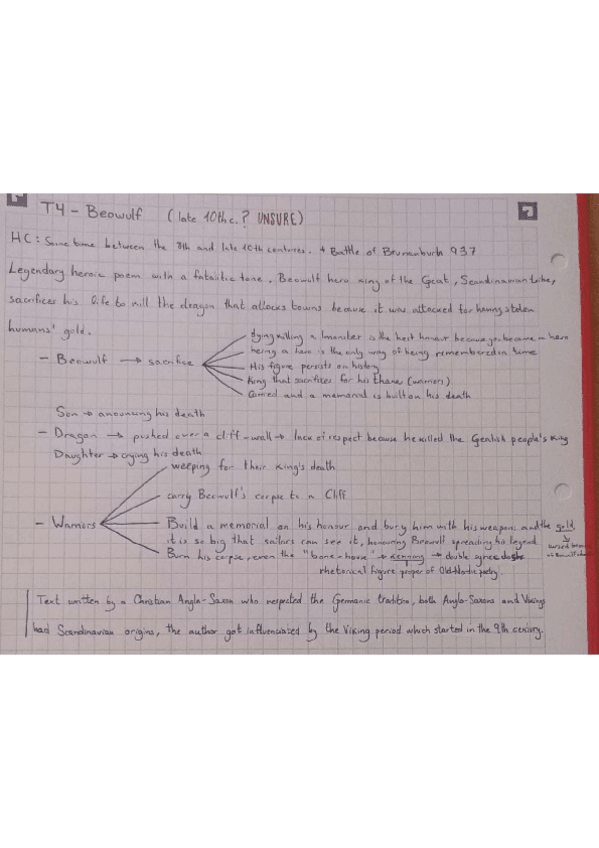 T4 - Beowulf (late 10th c.? UNSURE)
HC: Sometime between the 8th and late 10th centuries. + Battle of Brunanburh 937
Legendary heroic poem with a fatalistic tone. Beowulf hero king of the Geat, Scandinavian tribe,
sacrifices his life to kill the dragon that attacks towns because it was attacked for having stolen
humans' gold.
- Beowulf → sacrifice
dying killing a monster is the best honour because you become a hero
being a hero is the only way of being remembered in time
His figure persists on history
King that sacrifices for his thanes (warriors)
Carried and a memorial is built on his death
Son → anouncing his death
- Dragon → pushed over a cliff-wall → lack of respect because he killed the Geatish people's King
Daughter → crying his death
- Warriors
weeping for their king's death
carry Beowulf's corpse to a Cliff
Build a memorial on his honour and bury him with his weapons and the gold
it is so big that sailors can see it, honouring Beowulf spreading his legend
Burn his corpse, even the "bone-house" → kenning → double
rhetorical figure proper of Old-Nordic poetry
Text written by a Christian Anglo-Saxon who respected the Germanic tradition, both Anglo-Saxons and Vikings
had Scandinavian origins, the author got influenciated by the Viking period which started in the 9th century.